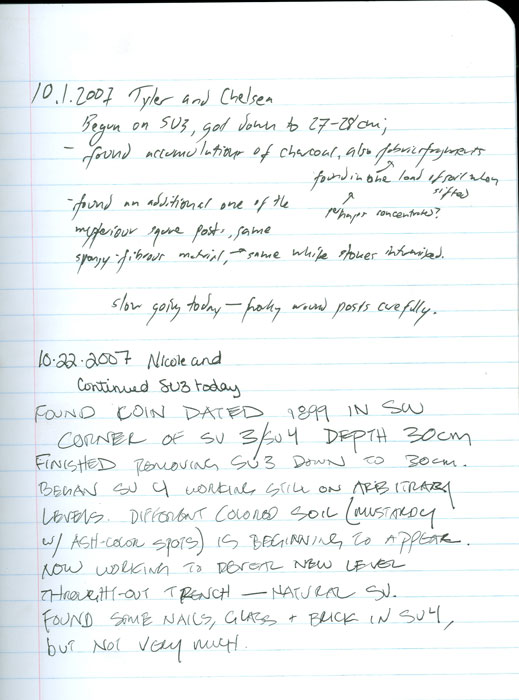 10.1.2007 Tyler and Chelsea
Begun on SU3, god down to 27-28cm;
- found accumulations of charcoal, also fabric fragments
found in one load of soil when
sifted
perhaps concentrated?
- found an additional one of the
mysterious square posts, same
spongy-fibrous material, same white stones intermixed.
slow going today — around posts carefully.
10.22.2007 Nicole and
Continued SU3 today
FOUND COIN DATED 1899 IN SW
CORNER OF SU 3/SU4 DEPTH 30cm
FINISHED REMOVING SU3 DOWN TO 30cm.
BEGAN SU 4 WORKING STILL ON ARBITRARY
LEVELS. DIFFERENT COLORED SOIL (MUSTARDY
W/ ASH-COLOR SPOTS) IS BEGINNING TO APPEAR.
NOW WORKING TO NEW LEVEL
THROUGHT-OUT TRENCH — NATURAL SU.
FOUND SOME NAILS, GLASS + BRICK IN SU4,
but NOT VERY MUCH.